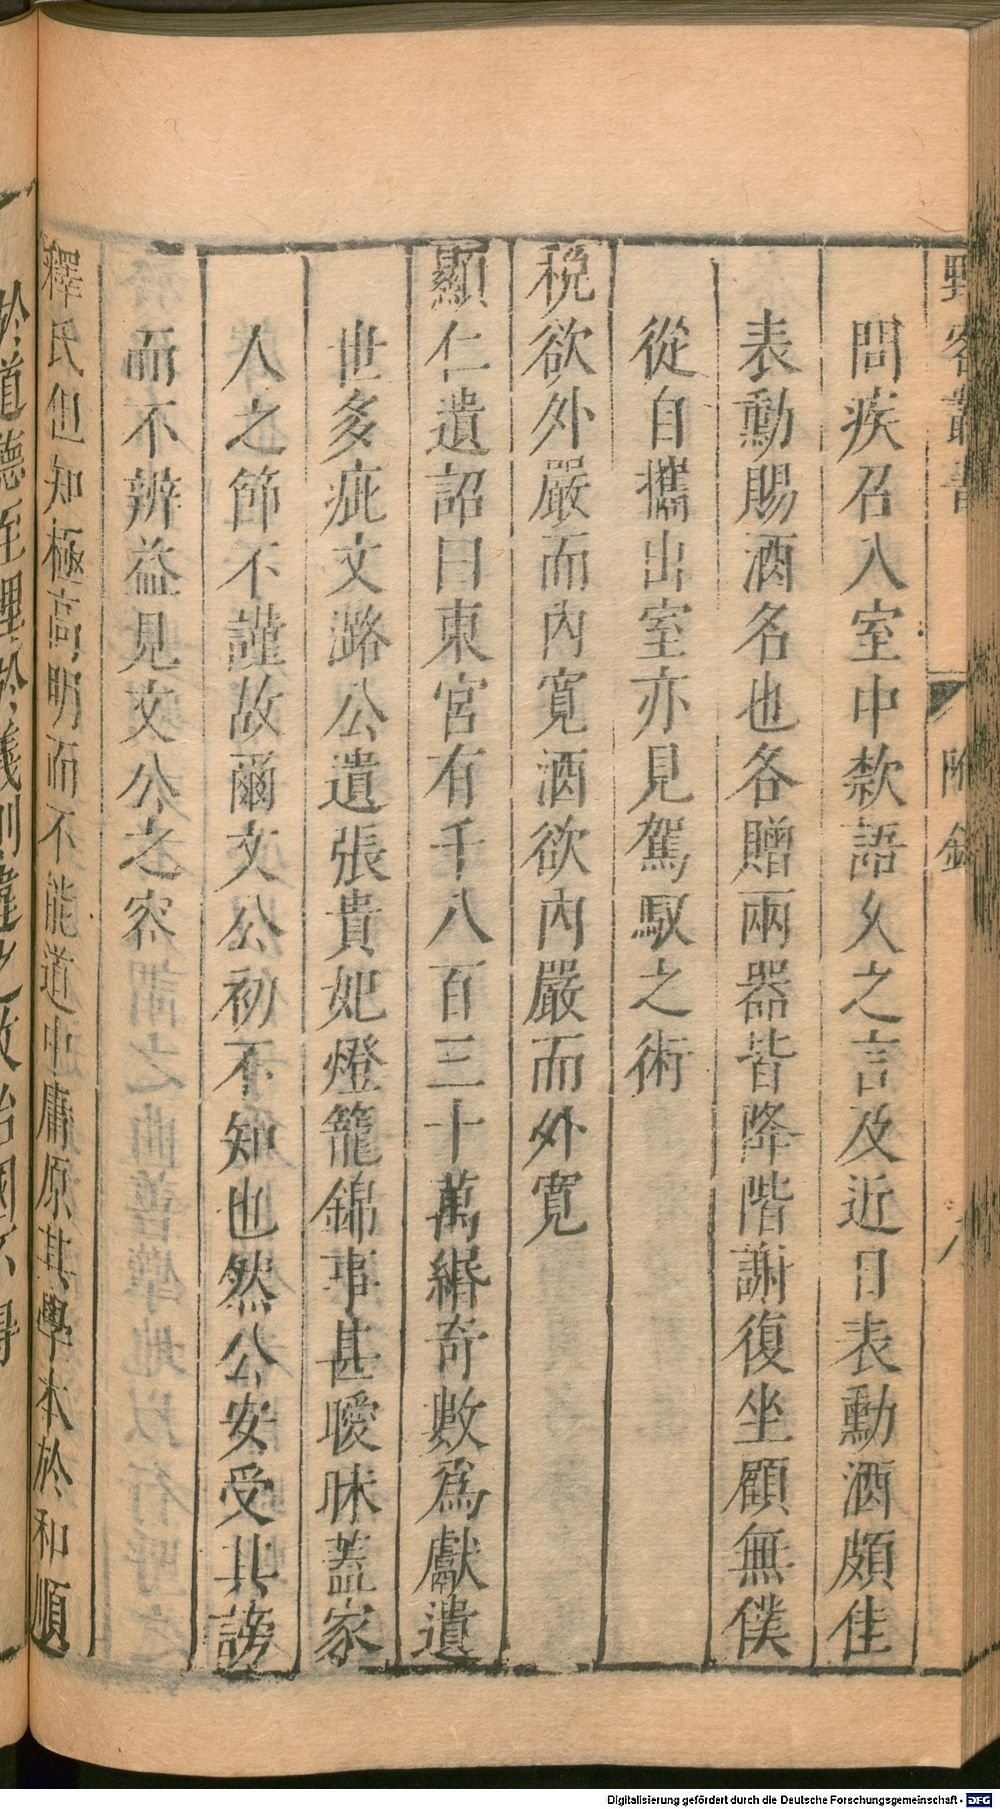 野客叢書 附錄 八
問疾召入室中款語久之言及近日表勳酒頗佳
表勳賜酒名也各贈兩器皆降階謝復坐顧無僕
從自攜出室亦見駕馭之術
稅欲外嚴而內寬酒欲內嚴而外寬
顯仁遺詔曰東宮有千八百三十萬緡奇數爲獻遺
世多疵文潞公遺張貴妃燈籠錦事甚曖昧蓋家
人之節不謹故爾文公初不知也然公安受其謗
而不辨益見文公之容
釋氏但知極高明而不能道中庸原其學本於和順
於道德至理於義則違之故治國不得
Digitalisierung gefördert durch die Deutsche Forschungsgemeinschaft - DFG